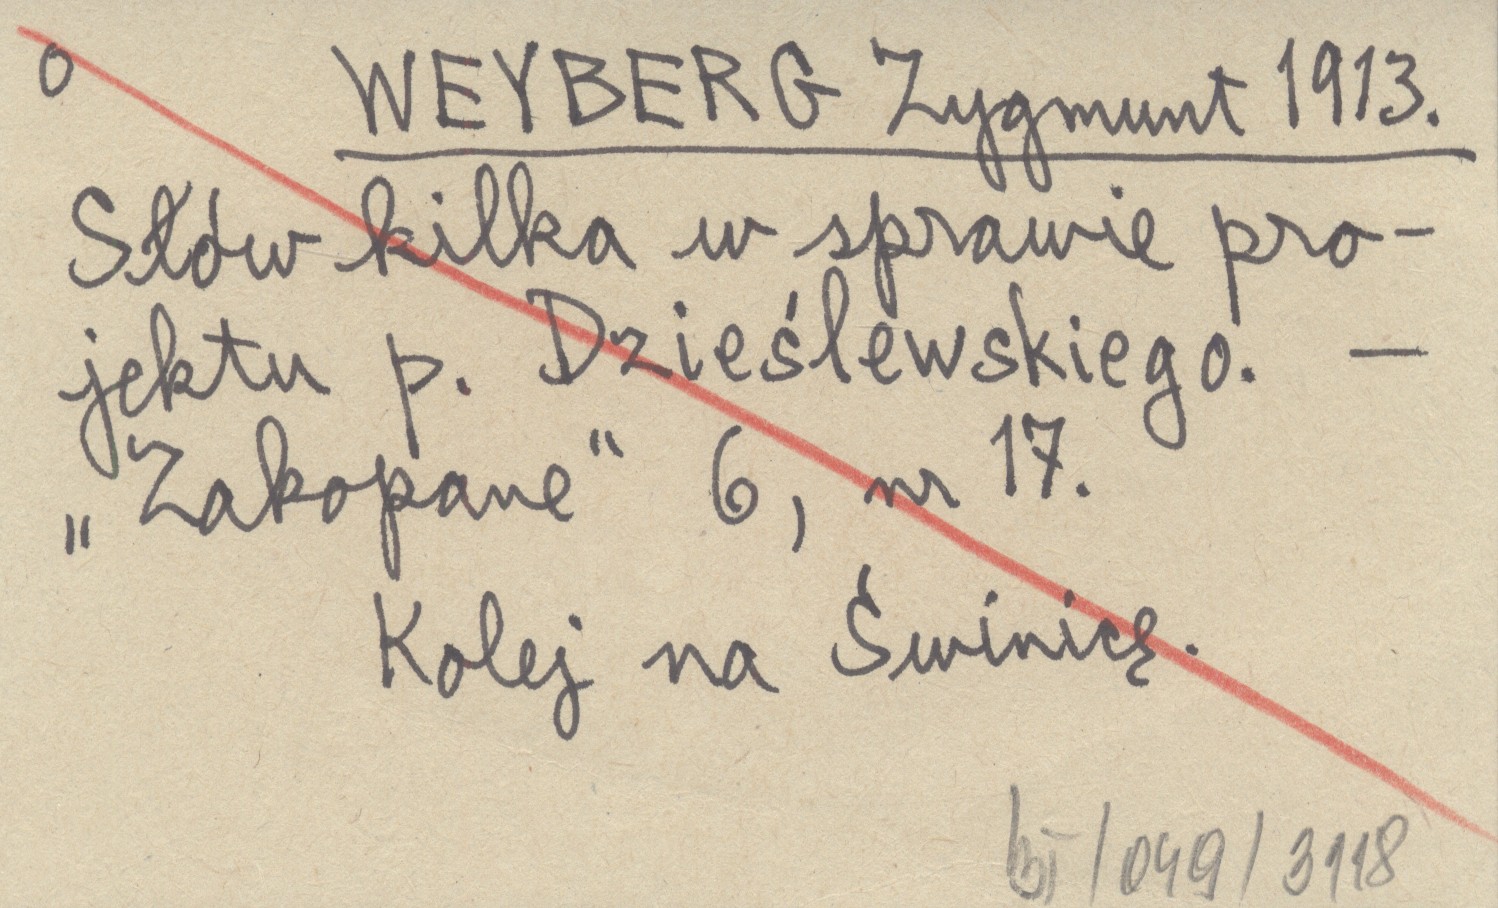 o WEYBERG Zygmunt 1913.
Słów kilka w sprawie pro-
jektu p. Dzieślewskiego. —
„Zakopane“ 6, nr 17.
Kolej na Świnicę.
/049/3118